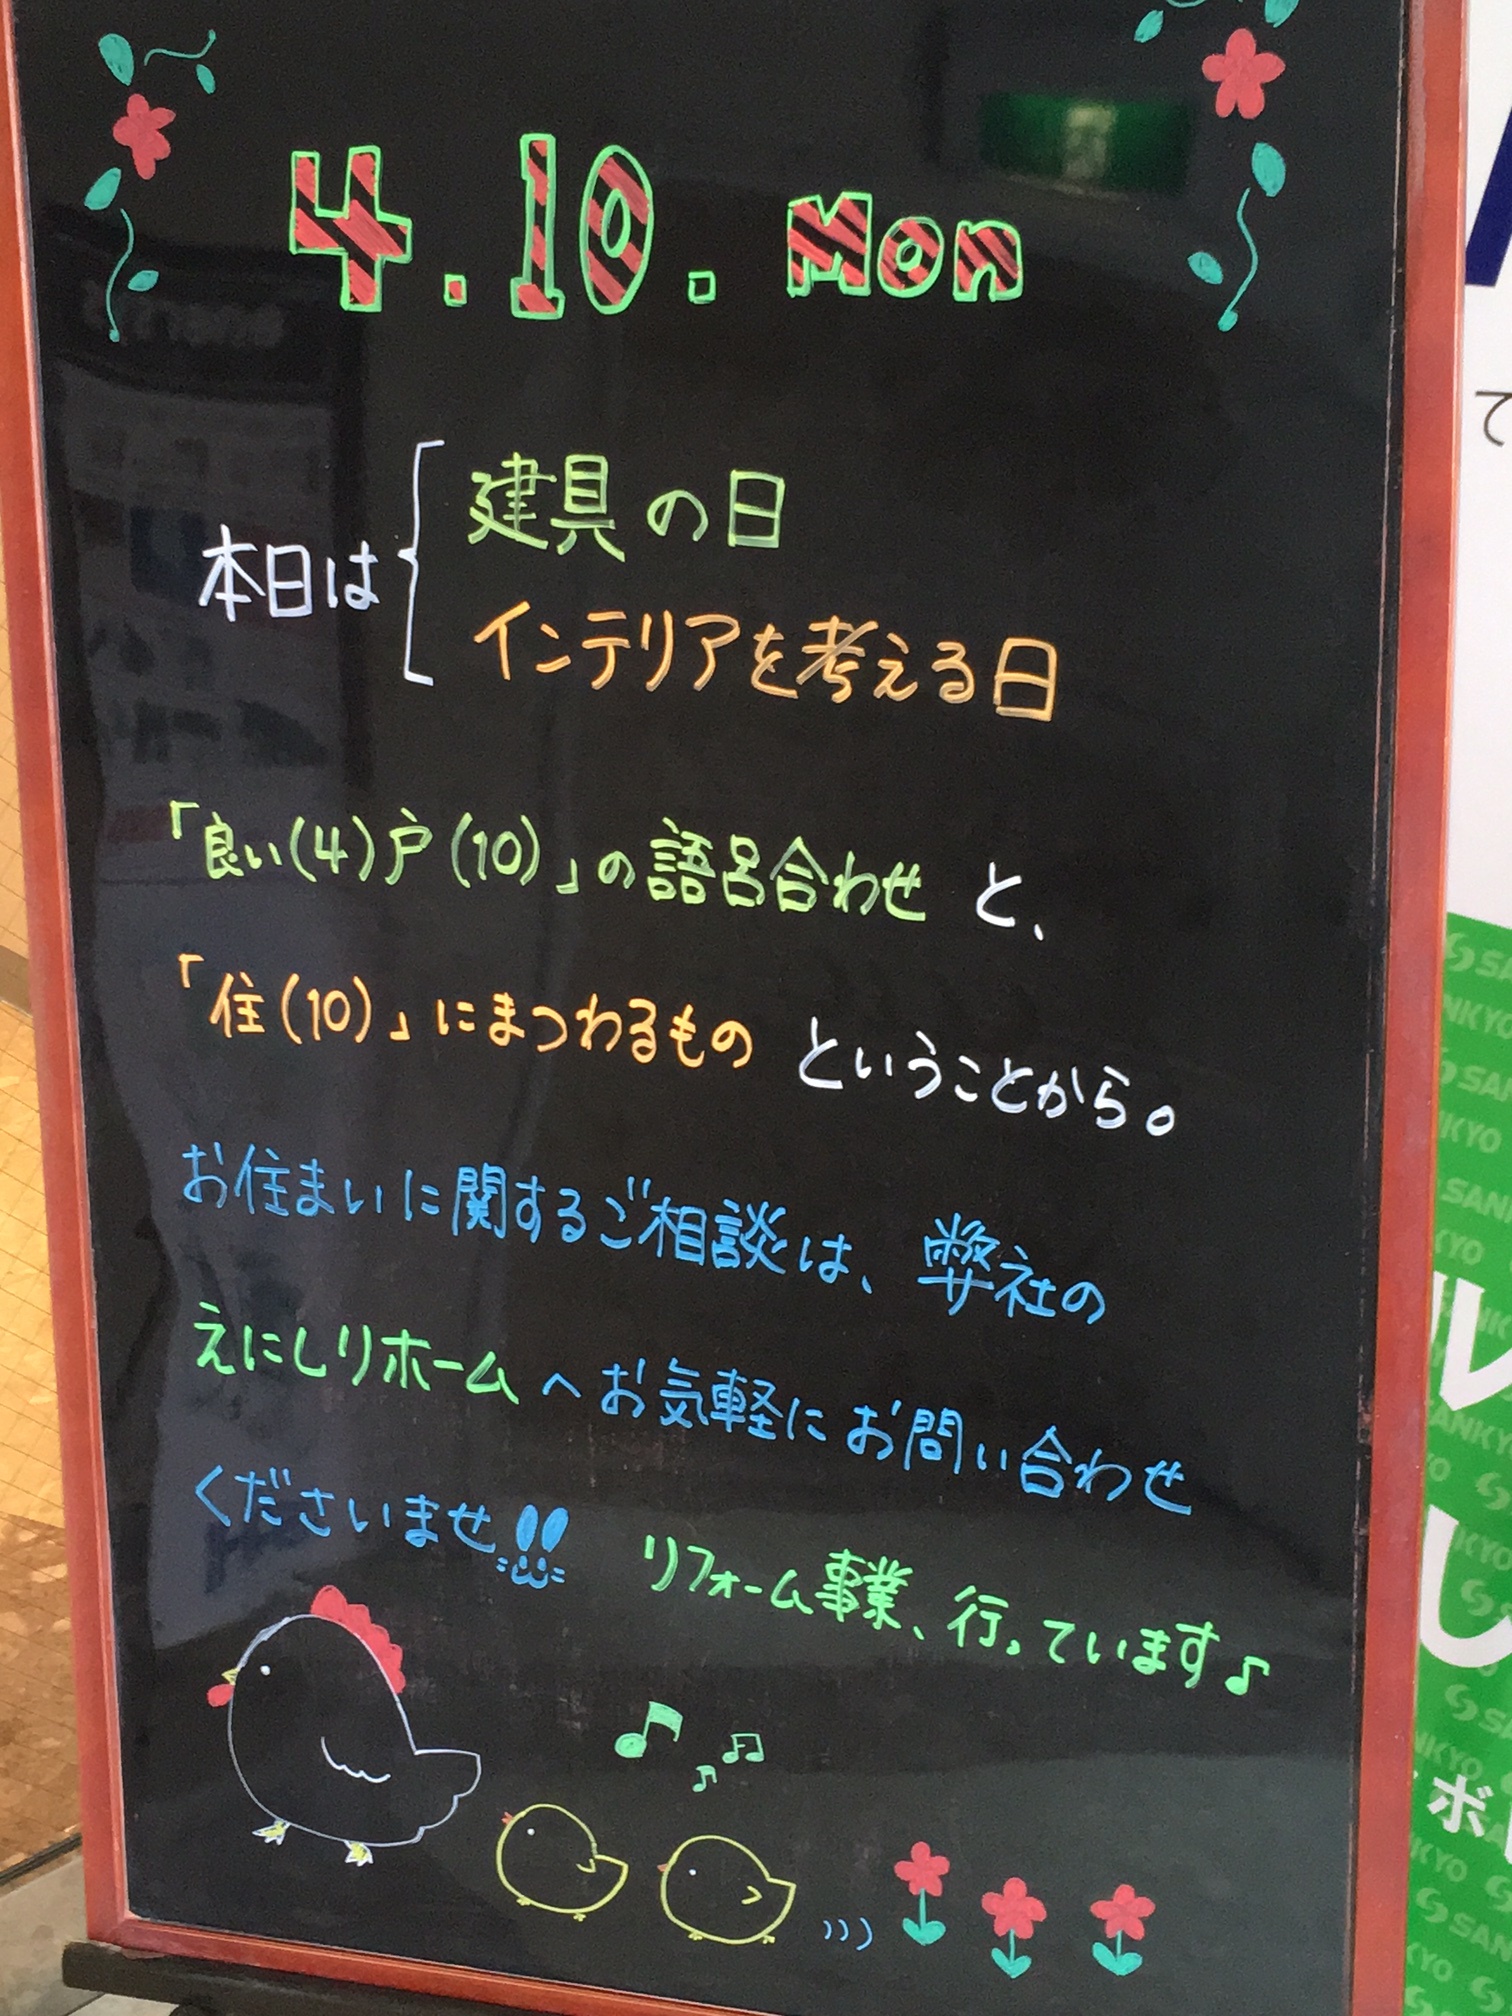 4.10.Mon
本日は
建具の日
インテリアを考える日
「良い(4)戸(10)」の語呂合わせ と、
「住(10)」にまつわるもの ということから。
お住まいに関するご相談は、弊社の
えにしリホームへお気軽にお問い合わせ
くださいませ!!
リフォーム事業、行っています♪
て
SANKYO
ル
し
ボ